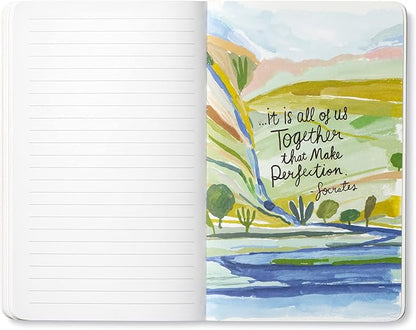 ...it is all of us
Together
that Make
Perfection.
-Socrates